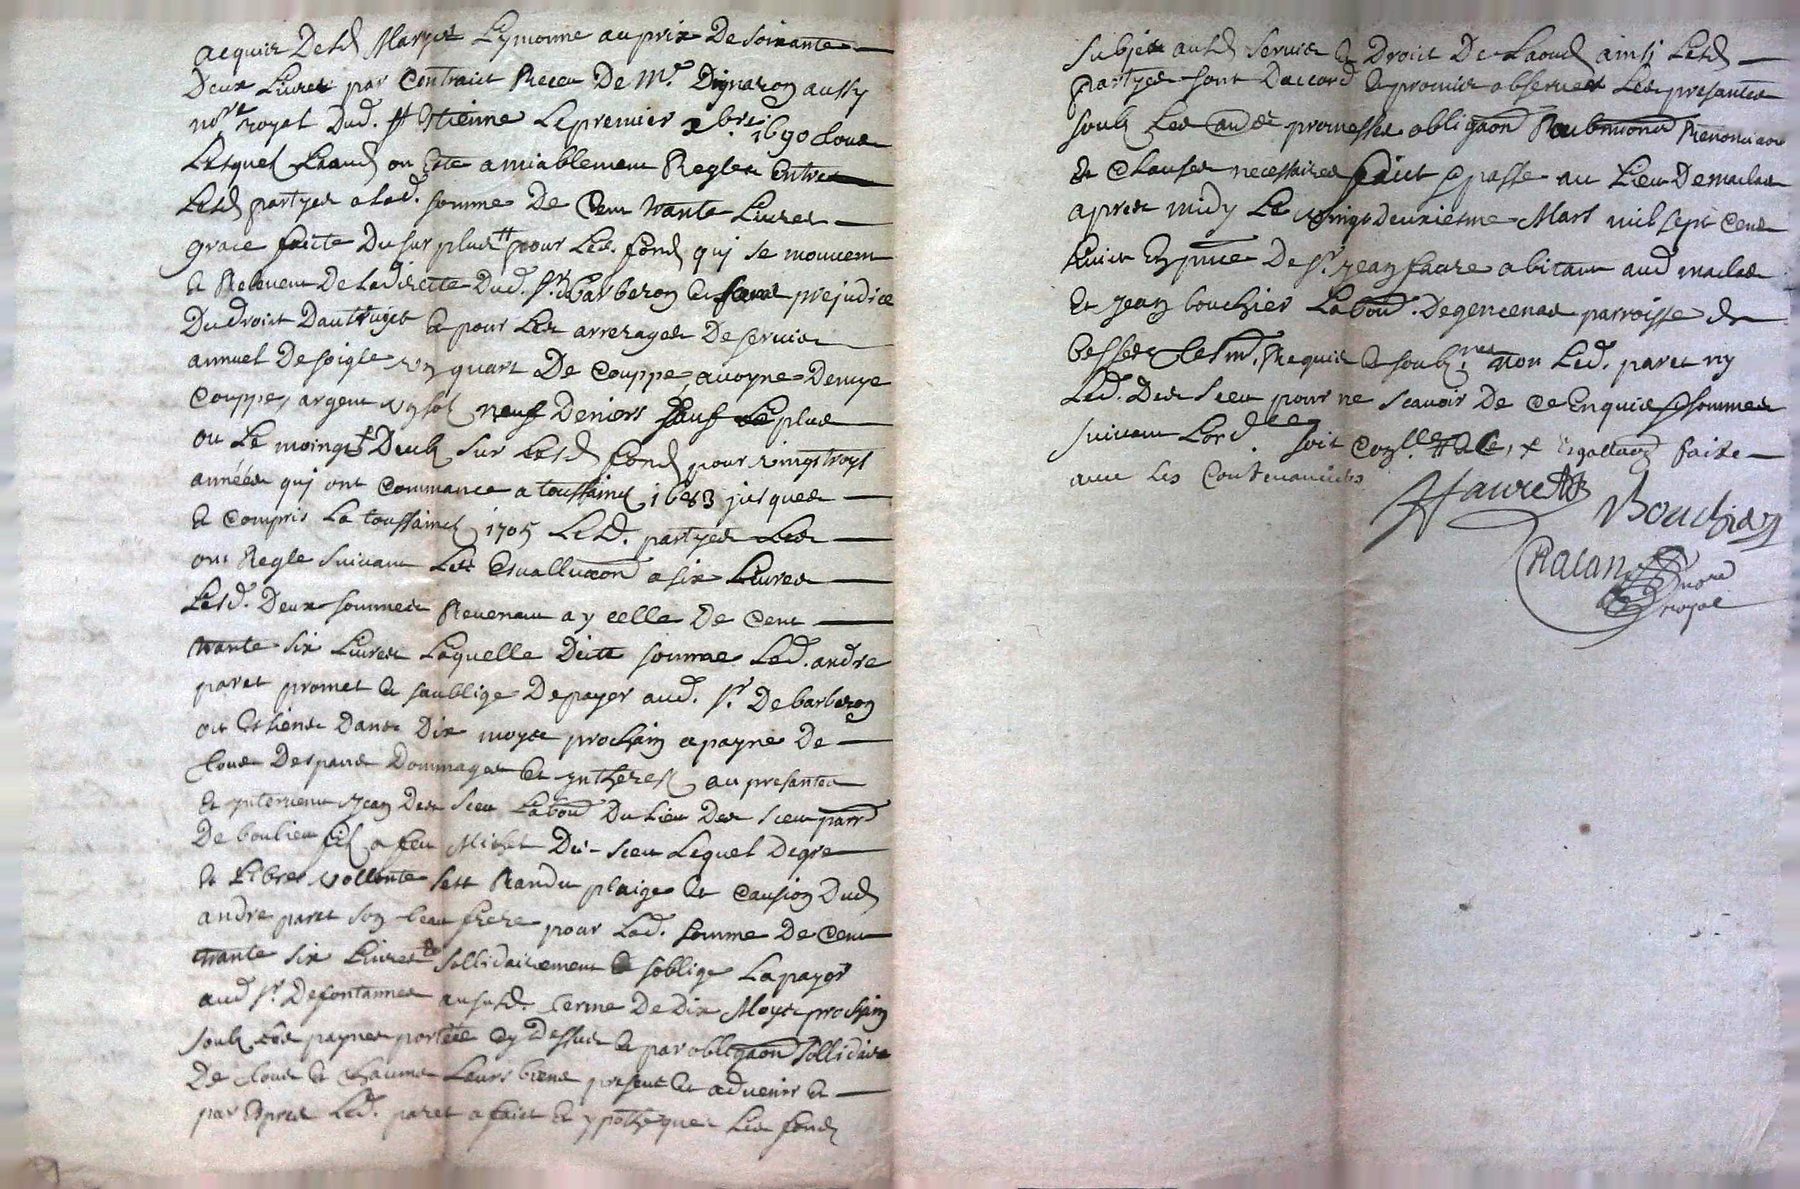 acquis desd Maryes Eymonne au prix de soixante
deux Livres par Contraict Receu de Mr. Dignaron aussy
nore. royal dud. St Etienne Le premier xbre. 1690 tous
Lesquels Laauds on este amiablement Regles entre
Lesd partyes a lad. somme de Cent trante Livres
grace faicte du surplus pour Les. fonds quj se mouvent
et Relevent de La directe dud. Sr. Barberon et sans prejudice
du droict dautruyet et pour Les arrerages de servis
annuel de soigle un quart de Couppe, avoyne demye
Couppe, argent un sol neuf deniers sauf Le plus
ou Le moings deub sur Lesd fonds pour vingt troys
années quj ont commance a toussainct 1683 jusques
et compris La toussainct 1705 Lesd. partyes Les
ont Regle suivant Les Esvalluaon a six Livres
Lesd. deux sommes Revenant a ycelle de Cent
trante six Livres Laquelle ditte somme Led. andre
paret promet et soublige de payer aud. Sr. de barberon
ou Es siens dans dix moys prochain a payne de
tous despans dommages et yntherest au presantes
et yntervenu Jean des sceu Labour du Lieu des sceu parr
de boulieu fils a feu Michel des sceu Lequel de gre
et Libre vollonte sest Randu plaige et Causion dud
andre paret son beau frere pour Lad. somme de Cent
trante six Livres sollidairement et soblige La payer
aud Sr. de fontannes au susd. terme de dix Moys prochain
soub Les paynes portées cy dessus et par obligaon sollidaire
de tous et chacuns Leurs biens presents et advenir et
par Expres Led. paret a faict et ypotheques Les fonds
subjets ausd Servis et Droict de Laoud ainsi Lesd
partyes sont daccord et promis observer Les presantes
soub Les promesses obligaon Renonciaon
et Clauses necessaires faict et passe au Lieu de maclas
apres midy Le vingt deuxiesme Mars mil sept Cens
huict En pnce de Sr. Jean faure abitant aud maclas
et Jean bouchier Labour. de gencenas parroisse de
besses Tesm. Requis et soubs.nes non Led. paret ny
Led. des sceu pour ne scavoir de ce Enquis et sommes
suivant Lord soit Conlle faire
avec Les Contenancies
Faure
Bouchier
Chalan
nore
royal